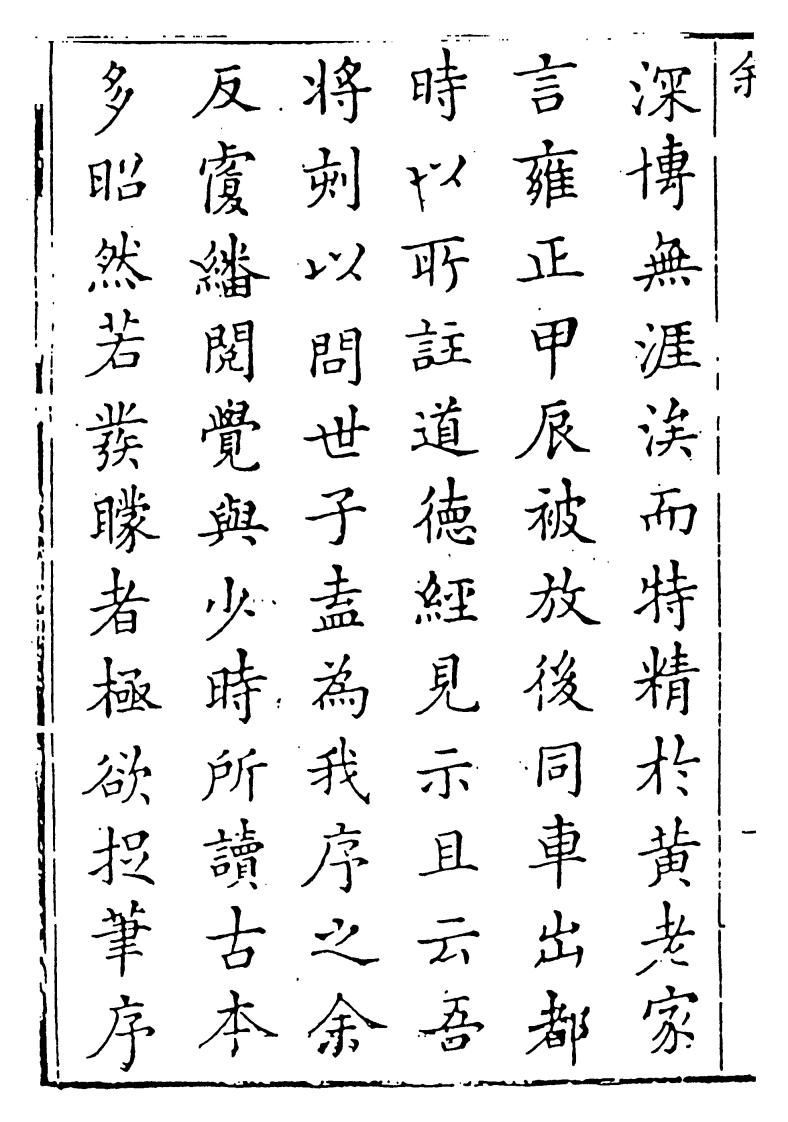 深博無涯涘而特精於黃老家
言雍正甲辰被放後同車出都
時以所註道德經見示且云吾
將刻以問世子盍為我序之余
反覆繙閱覺與少時所讀古本
多昭然若發矇者極欲捉筆序